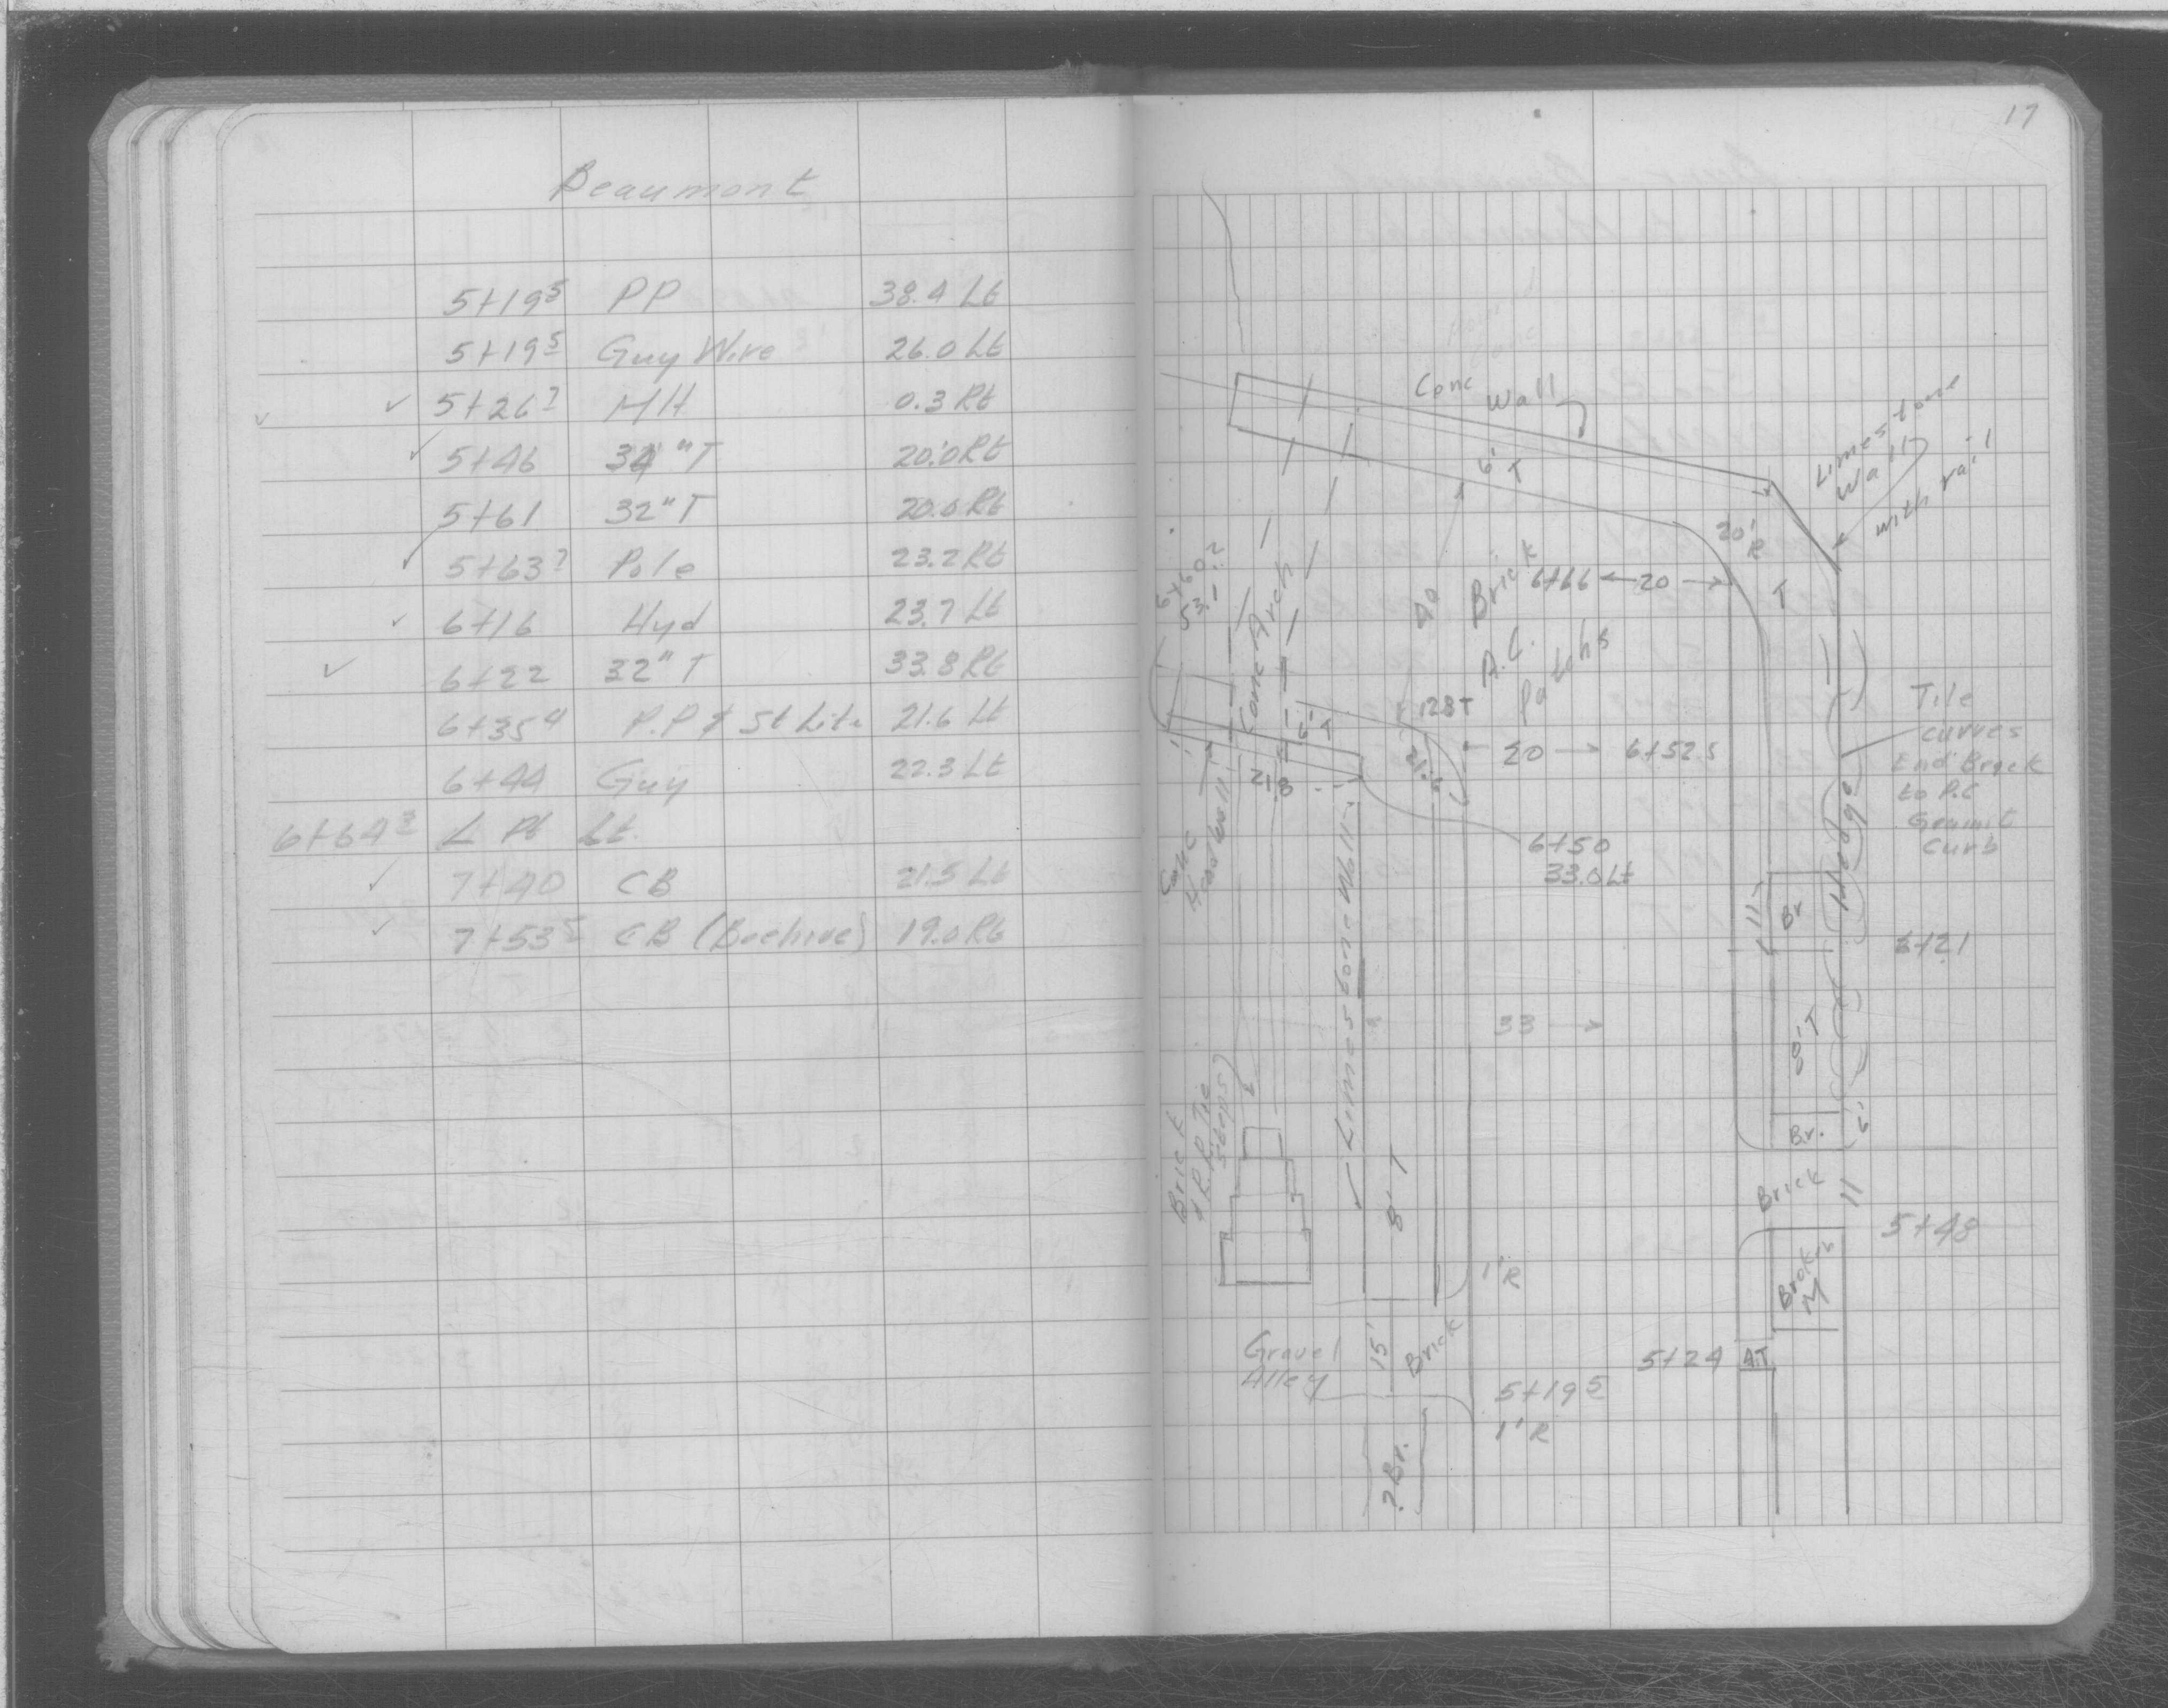 Beaumont
5+19⁵ PP 38.4 Lt
5+19⁵ Guy Wire 26.0 Lt
✓ ✓ 5+26⁷ MH 0.3 Rt
✓ 5+46 34"T 20.0 Rt
5+61 32"T 20.0 Rt
✓ 5+63⁷ Pole 23.2 Rt
✓ 6+16 Hyd 23.7 Lt
✓ 6+22 32"T 33.8 Rt
6+35⁴ P.P & St Lite 21.6 Lt
6+44 Guy 22.3 Lt
6+64³ L Pt Lt.
✓ 7+40 CB 21.5 Lt
✓ 7+53⁵ CB (Beehive) 19.0 Rt
17
Conc
Wall
Limestone
Wall
with rail
6'
T
20'
R
6+66 ← 20 →
T
6+60.2
53.1
Conc Arch
40
Brick
A.C.
Patchs
128T
6'
T
21.8
← 20 → 6+52.5
Tile
curves
End Brick
to P.C
Granit
Curb
Conc
Headwall
6+50
33.0 Lt
Hedge
11'
Br
6+21
Limestone Wall
33 →
8' T
6'
Br.
Brick
& R.R. Tie
Steps
8' T
Brick
11
5+48
1'R
Broken
Gravel
Alley
15'
Brick
5+24 4.T
5+19⁵
1'R
Br.